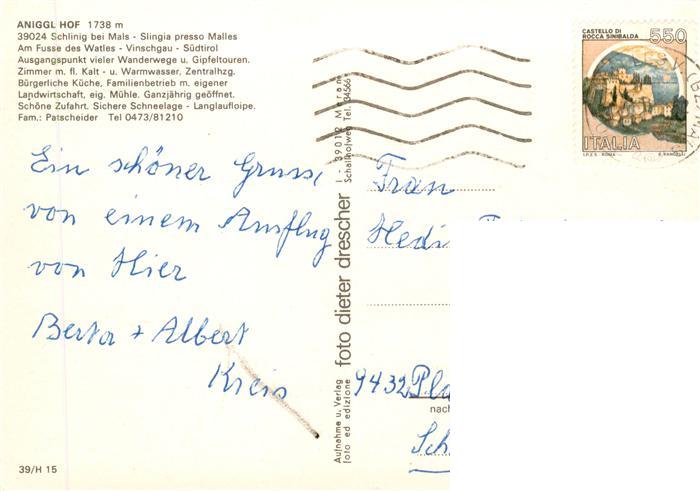 ANIGGL HOF 1738 m
39024 Schlinig bei Mals - Slingia presso Malles
Am Fusse des Watles - Vinschgau - Südtirol
Ausgangspunkt vieler Wanderwege u. Gipfeltouren.
Zimmer m. fl. Kalt - u. Warmwasser, Zentralhzg.
Bürgerliche Küche, Familienbetrieb m. eigener
Landwirtschaft, eig. Mühle. Ganzjährig geöffnet.
Schöne Zufahrt. Sichere Schneelage - Langlaufloipe.
Fam.: Patscheider Tel 0473/81210
Ein schöner Gruss,
von einem Ausflug
von Hier
Berta + Albert
Kreis
39/H 15
Aufnahme u. Verlag
foto ed edizione
foto dieter drescher
I - 39012 Meran
Schallhofweg Tel. 34566
CASTELLO DI
ROCCA SINIBALDA
550
ITALIA
I.P.Z.S. - ROMA
E. VANGELLI
Frau
Hedi
9432 Pla
nach
Sch